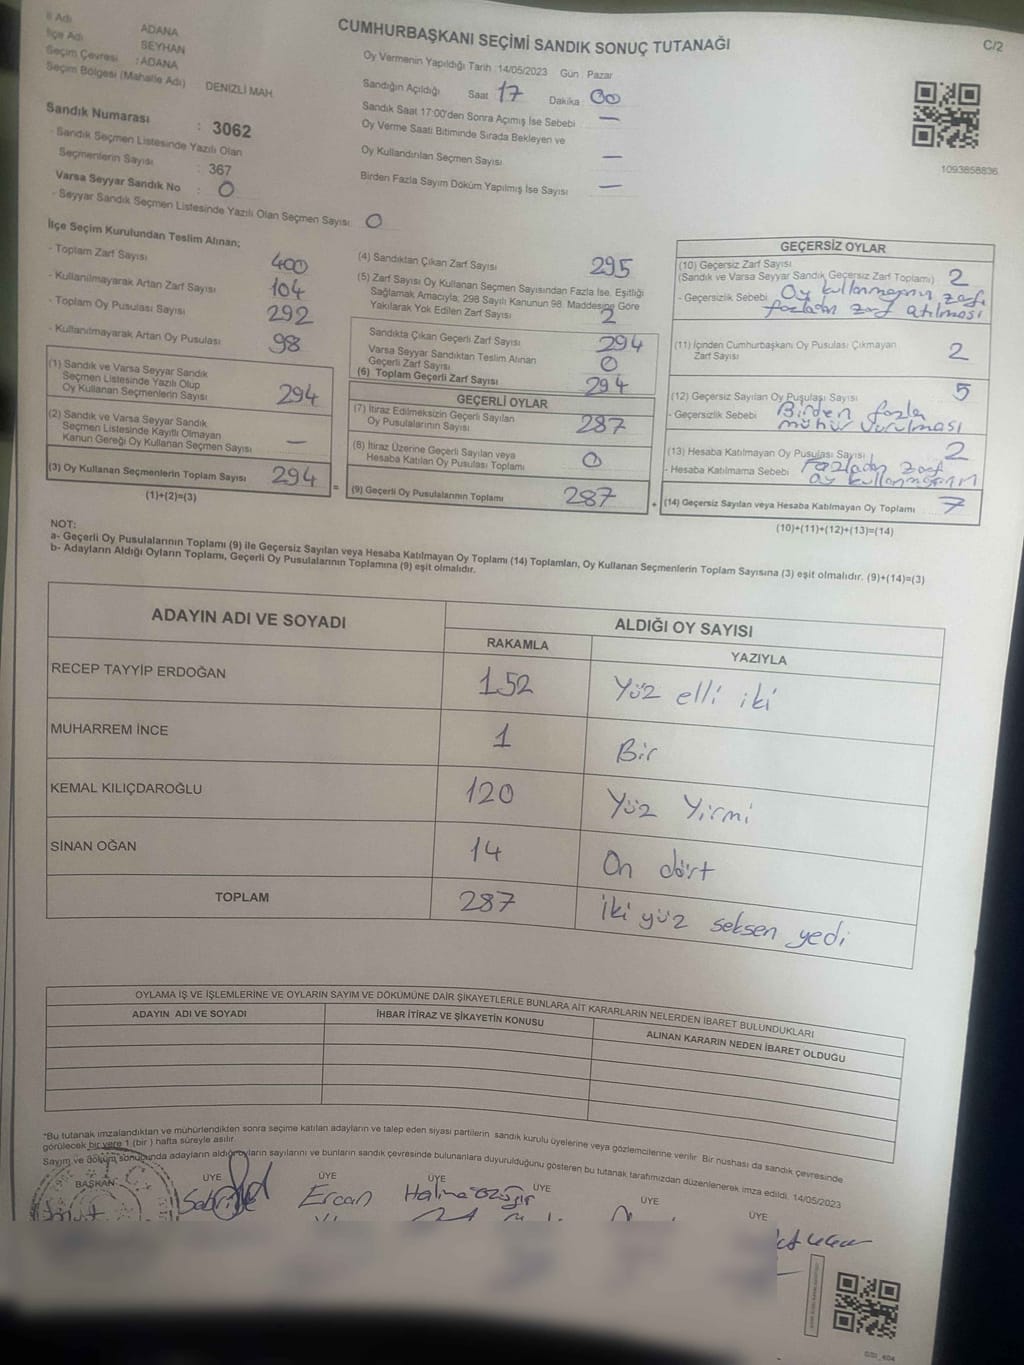 CUMHURBAŞKANI SEÇİMİ SANDIK SONUÇ TUTANAĞI
C/2
İl Adı ADANA
İlçe Adı SEYHAN
Seçim Çevresi : ADANA
Seçim Bölgesi (Mahalle Adı) DENİZLİ MAH.
Sandık Numarası : 3062
- Sandık Seçmen Listesinde Yazılı Olan
Seçmenlerin Sayısı : 367
Varsa Seyyar Sandık No : 0
- Seyyar Sandık Seçmen Listesinde Yazılı Olan Seçmen Sayısı: 0
Oy Vermenin Yapıldığı Tarih :14/05/2023 Gün : Pazar
Sandığın Açıldığı Saat 17 Dakika : 00
Sandık Saat 17:00'den Sonra Açımış İse Sebebi —
Oy Verme Saati Bitiminde Sırada Bekleyen ve
Oy Kullandırılan Seçmen Sayısı —
Birden Fazla Sayım Döküm Yapılmış İse Sayısı —
1093858836
İlçe Seçim Kurulundan Teslim Alınan;
- Toplam Zarf Sayısı 400
- Kullanılmayarak Artan Zarf Sayısı 104
- Toplam Oy Pusulası Sayısı 292
- Kullanılmayarak Artan Oy Pusulası 98
(1) Sandık ve Varsa Seyyar Sandık
Seçmen Listesinde Yazılı Olup
Oy Kullanan Seçmenlerin Sayısı 294
(2) Sandık ve Varsa Seyyar Sandık
Seçmen Listesinde Kayıtlı Olmayan
Kanun Gereği Oy Kullanan Seçmen Sayısı —
(3) Oy Kullanan Seçmenlerin Toplam Sayısı 294
(1)+(2)=(3)
(4) Sandıktan Çıkan Zarf Sayısı 295
(5) Zarf Sayısı Oy Kullanan Seçmen Sayısından Fazla İse, Eşitliği
Sağlamak Amacıyla; 298 Sayılı Kanunun 98. Maddesine Göre
Yakılarak Yok Edilen Zarf Sayısı 2
Sandıkta Çıkan Geçerli Zarf Sayısı 294
Varsa Seyyar Sandıktan Teslim Alınan
Geçerli Zarf Sayısı 0
(6) Toplam Geçerli Zarf Sayısı 294
GEÇERLİ OYLAR
(7) İtiraz Edilmeksizin Geçerli Sayılan
Oy Pusulalarının Sayısı 287
(8) İtiraz Üzerine Geçerli Sayılan veya
Hesaba Katılan Oy Pusulası Toplamı 0
= (9) Geçerli Oy Pusulalarının Toplamı 287
GEÇERSİZ OYLAR
(10) Geçersiz Zarf Sayısı
(Sandık ve Varsa Seyyar Sandık Geçersiz Zarf Toplamı) 2
- Geçersizlik Sebebi Oy kullanmanın zarfı
fazladan zarf atılması
(11) İçinden Cumhurbaşkanı Oy Pusulası Çıkmayan
Zarf Sayısı 2
(12) Geçersiz Sayılan Oy Pusulası Sayısı 5
- Geçersizlik Sebebi Birden fazla
mühür vurulması
(13) Hesaba Katılmayan Oy Pusulası Sayısı 2
- Hesaba Katılmama Sebebi Fazladan zarf
oy kullanmanın
+ (14) Geçersiz Sayılan veya Hesaba Katılmayan Oy Toplamı 7
(10)+(11)+(12)+(13)=(14)
NOT:
a- Geçerli Oy Pusulalarının Toplamı (9) ile Geçersiz Sayılan veya Hesaba Katılmayan Oy Toplamı (14) Toplamları, Oy Kullanan Seçmenlerin Toplam Sayısına (3) eşit olmalıdır. (9)+(14)=(3)
b- Adayların Aldığı Oyların Toplamı, Geçerli Oy Pusulalarının Toplamına (9) eşit olmalıdır.
ADAYIN ADI VE SOYADI ALDIĞI OY SAYISI
RAKAMLA YAZIYLA
RECEP TAYYİP ERDOĞAN 152 Yüz elli iki
MUHARREM İNCE 1 Bir
KEMAL KILIÇDAROĞLU 120 Yüz Yirmi
SİNAN OĞAN 14 On dört
TOPLAM 287 İki yüz seksen yedi
OYLAMA İŞ VE İŞLEMLERİNE VE OYLARIN SAYIM VE DÖKÜMÜNE DAİR ŞİKAYETLERLE BUNLARA AİT KARARLARIN NELERDEN İBARET BULUNDUKLARI
ADAYIN ADI VE SOYADI İHBAR İTİRAZ VE ŞİKAYETİN KONUSU ALINAN KARARIN NEDEN İBARET OLDUĞU
*Bu tutanak imzalandıktan ve mühürlendikten sonra seçime katılan adayların ve talep eden siyasi partilerin sandık kurulu üyelerine veya gözlemcilerine verilir. Bir nüshası da sandık çevresinde
görülecek bir yere 1 (bir ) hafta süreyle asılır.
Sayım ve döküm sonucunda adayların aldığı oyların sayılarını ve bunların sandık çevresinde bulunanlara duyurulduğunu gösteren bu tutanak tarafımızdan düzenlenerek imza edildi. 14/05/2023
BAŞKAN ÜYE ÜYE ÜYE ÜYE ÜYE ÜYE
Ercan